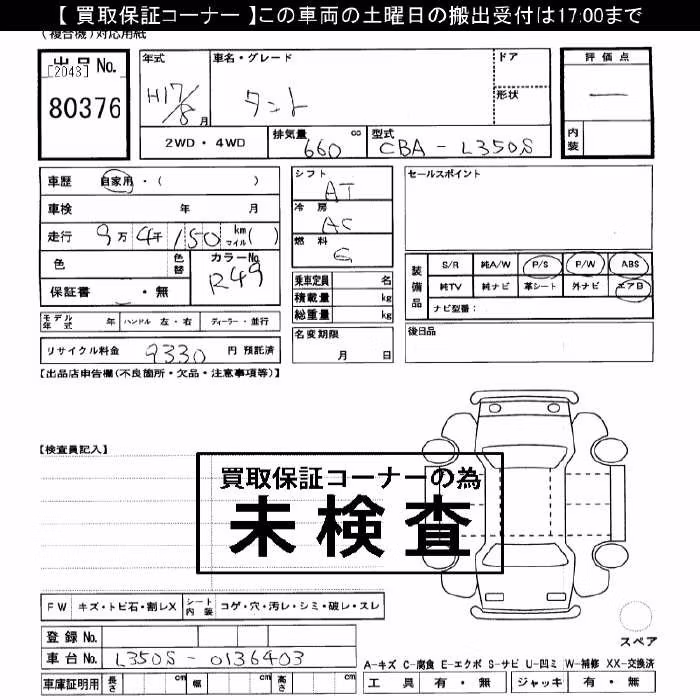 【 買取保証コーナー 】この車両の土曜日の搬出受付は17:00まで
(複合機)対応用紙
出品 No.
[2043]
80376
年式
H17/8 月
車名・グレード
タント
ドア
形状
評価点
―
内装
2WD・4WD
排気量 660 cc
型式 CBA - L350S
車歴 自家用・( )
車検 年 月
走行 9万 4千 150 km マイル( )
色 色替 カラーNo. R49
保証書 ・無
シフト AT
冷房 AC
燃料 G
乗車定員 名
積載量 kg
総重量 kg
セールスポイント
装備品
S/R 純A/W P/S P/W ABS
純TV 純ナビ 革シート 外ナビ エアB
ナビ型番:
モデル年式 年 ハンドル 左・右 ディーラー・並行
名変期限 月 日
後日品
リサイクル料金 9330 円 預託済
【出品店申告欄(不良箇所・欠品・注意事項等)】
【検査員記入】
買取保証コーナーの為
未検査
FW キズ・トビ石・割レX シート内装 コゲ・穴・汚レ・シミ・破レ・スレ
登録 No.
車台 No. L350S - 0136403
車庫証明用 長さ cm 幅 cm 高さ cm
スペア
A-キズ C-腐食 E-エクボ S-サビ U-凹ミ W-補修 XX-交換済
工具 有・無 ジャッキ 有・無